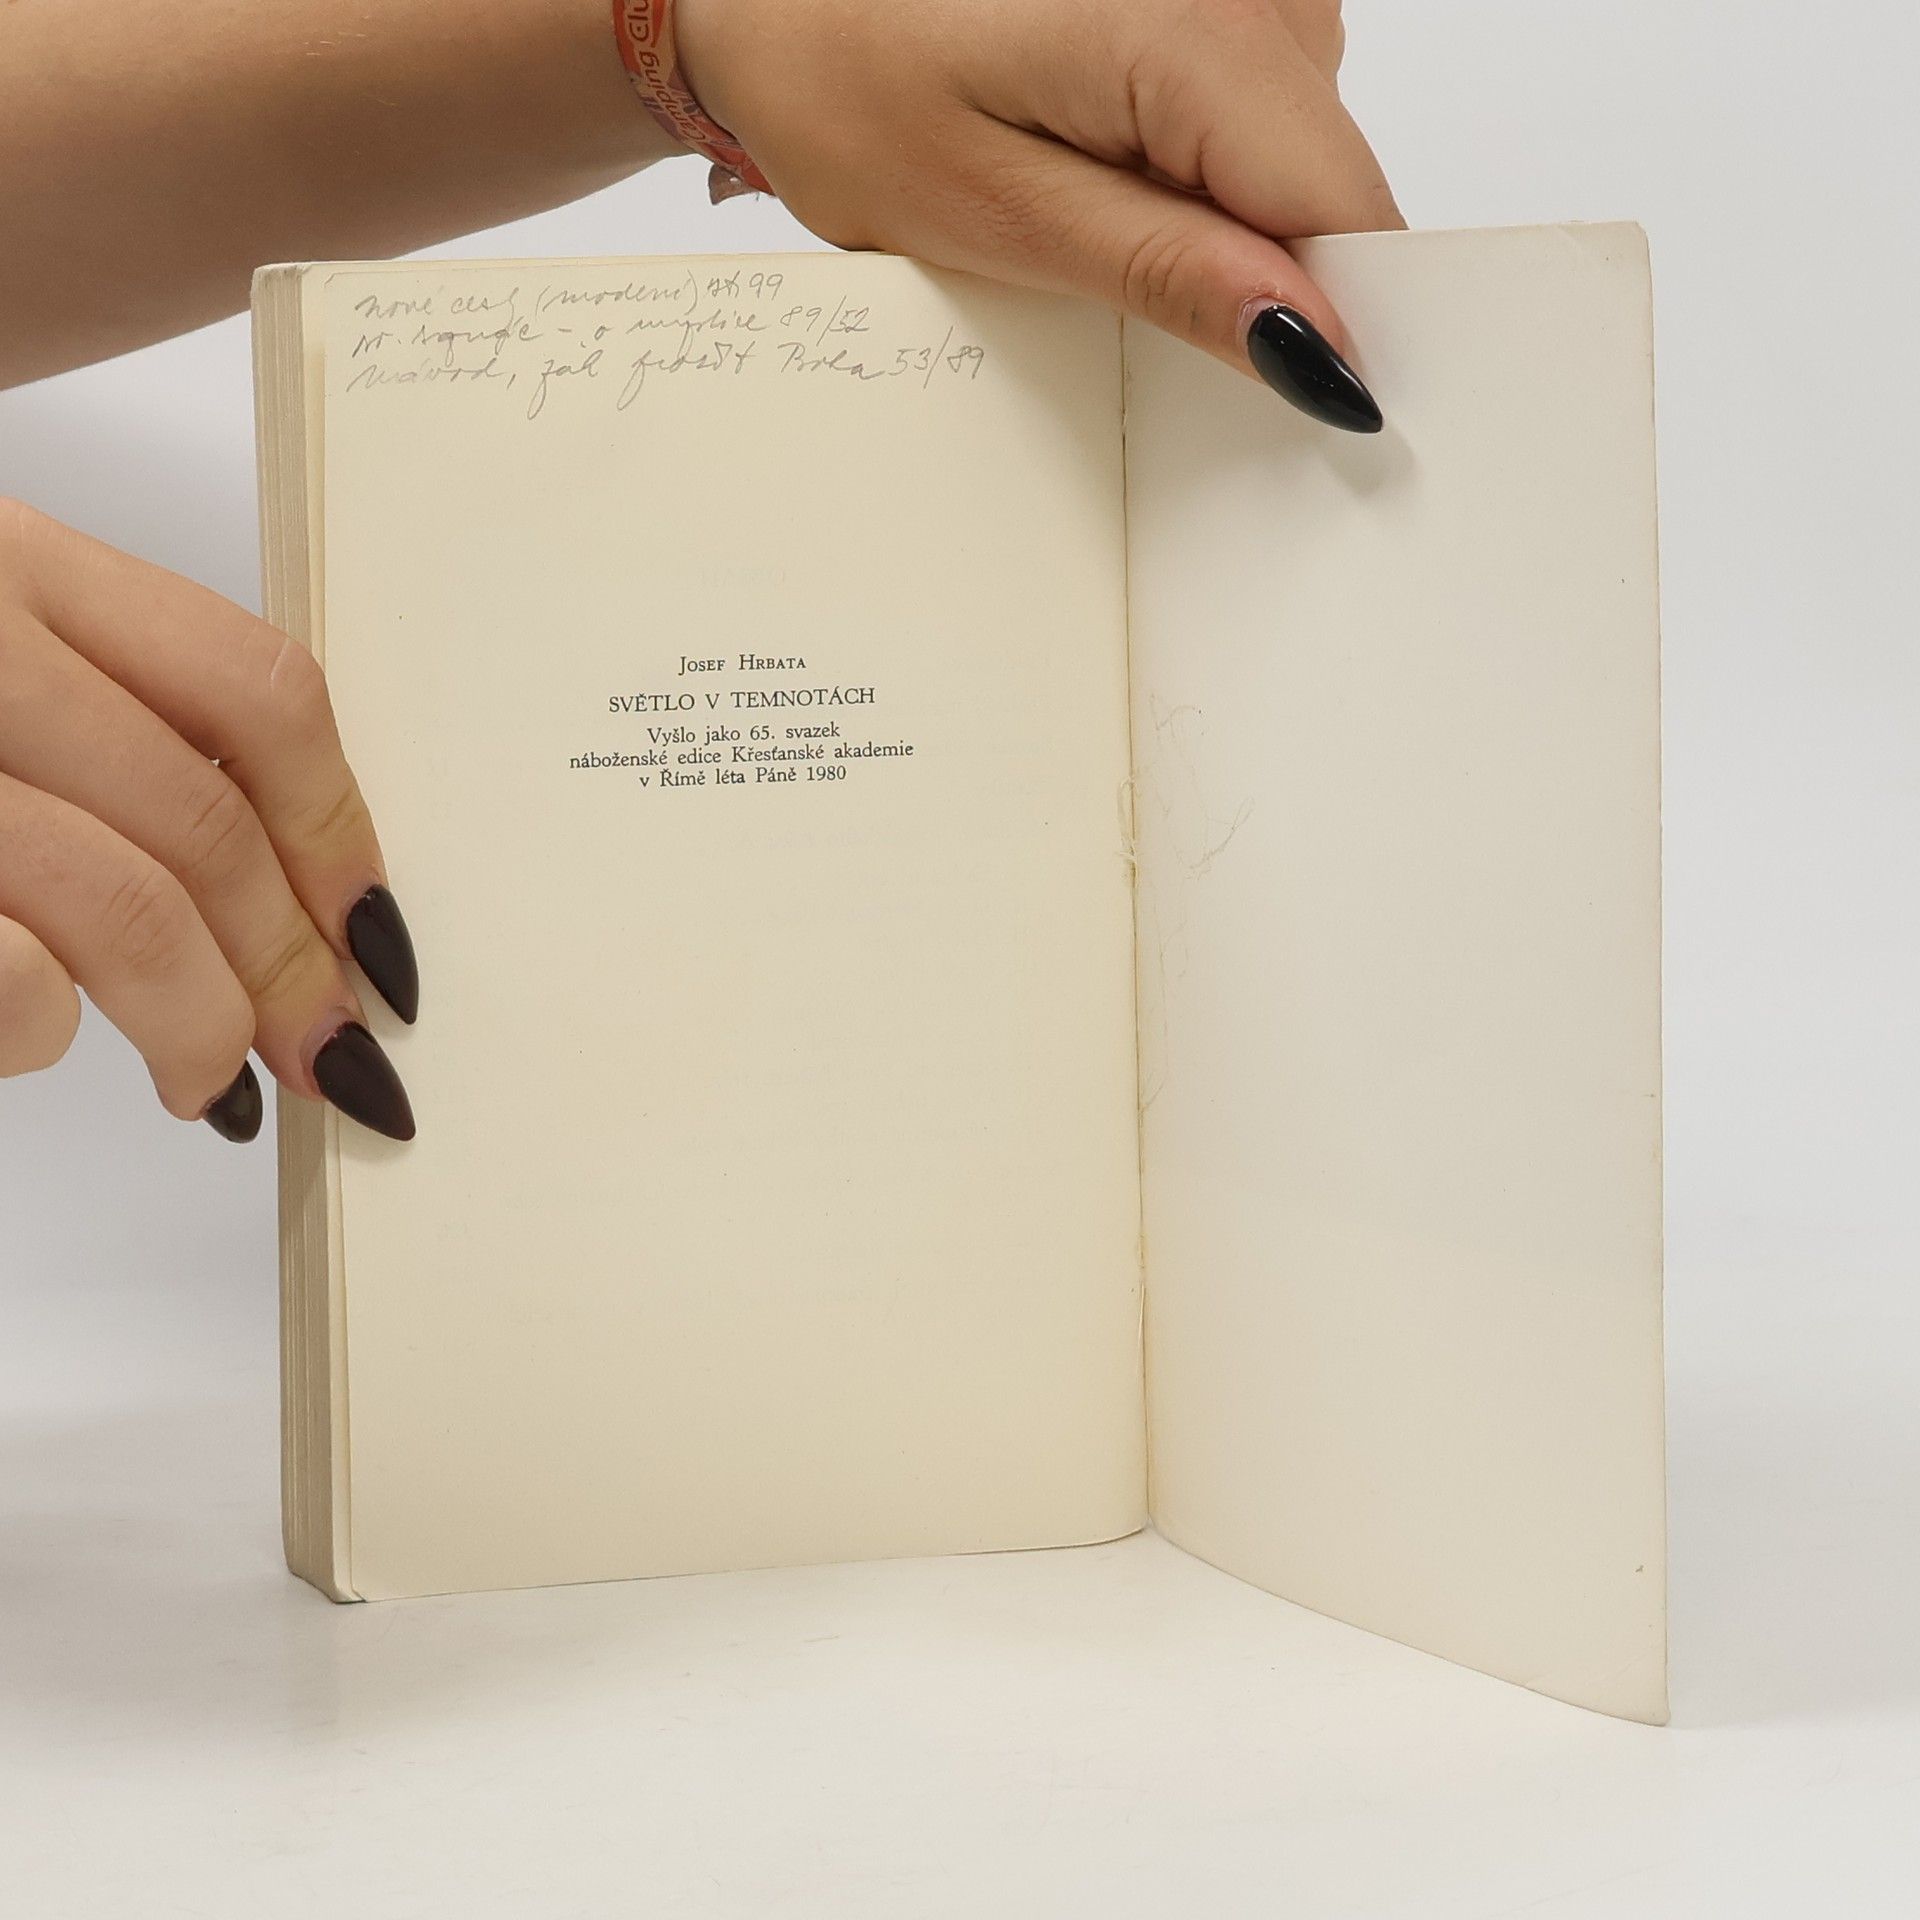 Camping Clu
nové cesty (moderní) str 99
sv. – o mystice 89/52
Návod, jak prosit Boha 53/89
JOSEF HRBATA
SVĚTLO V TEMNOTÁCH
Vyšlo jako 65. svazek
náboženské edice Křesťanské akademie
v Římě léta Páně 1980